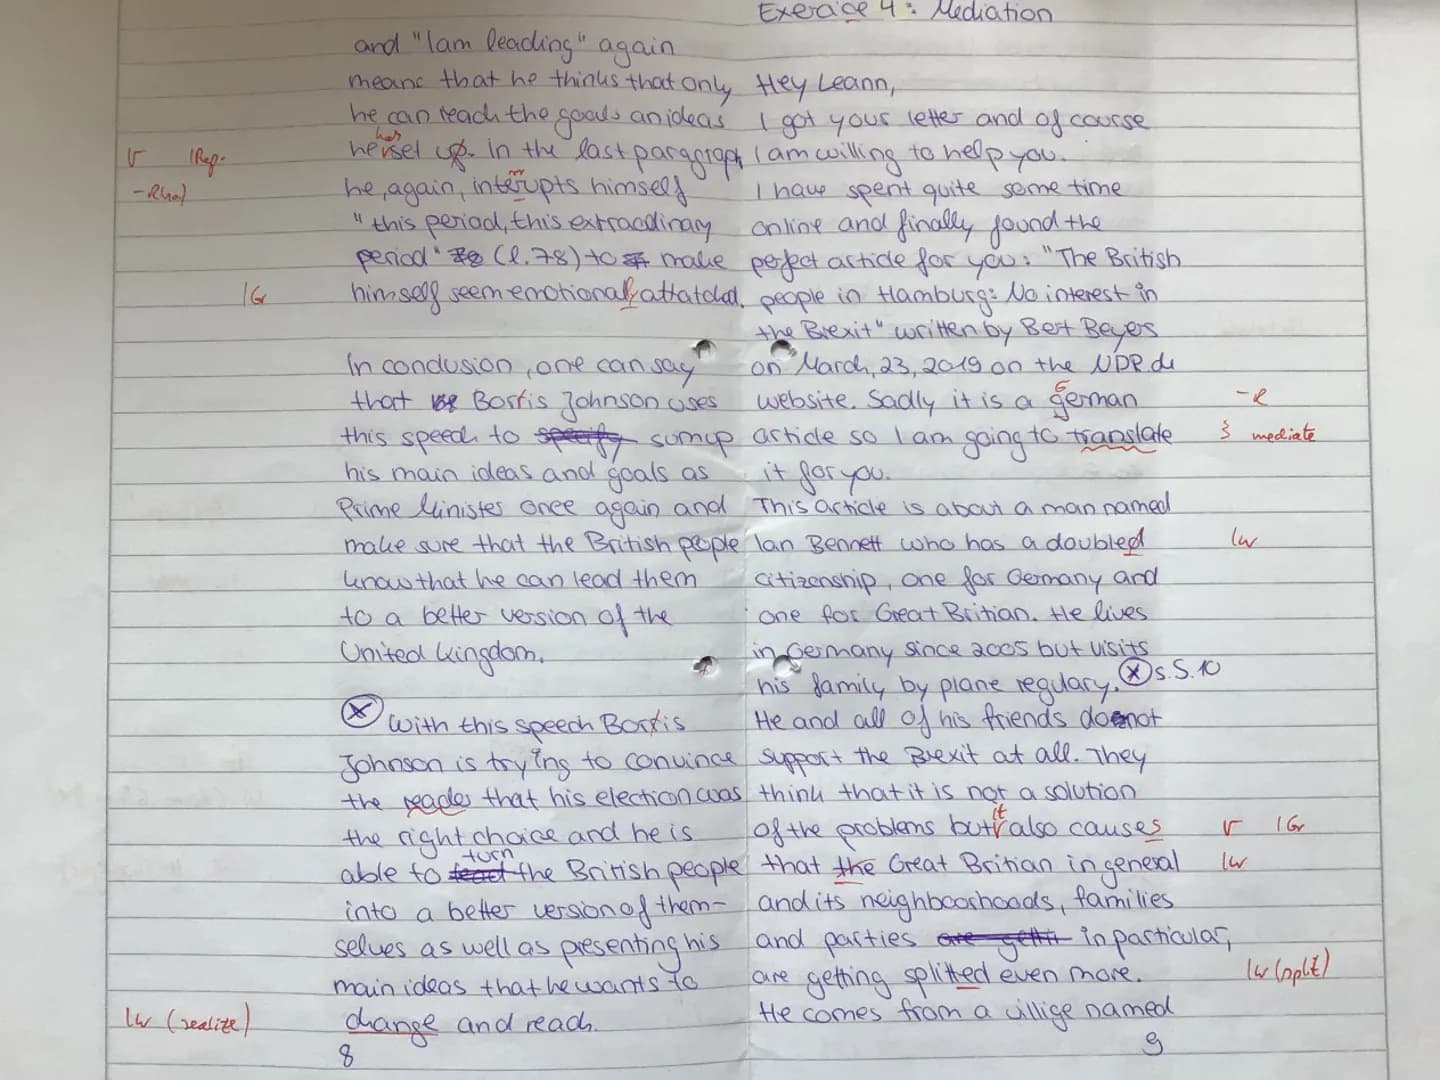 and "I am leading" again
means that he thinks that only
he can reach the goals an ideas
has
he set up. in the last paragraph
he, again, interrupts himself
"this period, this extraodinary
period" (l. 78) to make
himself seem emotionally attatched.
In conclusion, one can say
that Borris Johnson uses
this speech to specify sum up
his main ideas and goals as
Prime Minister once again and
make sure that the British people
know that he can lead them
to a better version of the
United Kingdom.
With this speech Borris
Johnson is trying to convince
the reader that his election was
the right choice and he is
turn
able to lead the British people
into a better version of them-
selves as well as presenting his
main ideas that he wants to
change and reach.
8
√ 1Rep.
1Gr
1w (realize)
Exercice 4: Mediation
Hey Leann,
I got your letter and of course
I am willing to help you.
I have spent quite some time
online and finally found the
perfect article for you: "The British
people in Hamburg: No interest in
the Brexit" written by Bert Beyers
on March, 23, 2019 on the NDR.de
website. Sadly it is a german
article so I am going to translate
it for you.
This article is about a man named
Ian Bennett who has a doubled
citizenship, one for Germany and
one for Great Britian. He lives
in Germany since 2005 but visits
his family by plane regulary. X s. S. 10
He and all of his friends do not
support the Brexit at all. They
think that it is not a solution
it
of the problems but also causes
that the Great Britian in general
and its neighboorhoods, families
and parties are gettin in particular,
are getting splitted even more.
He comes from a villige named
9
-R
mediate
1w
√ 1Gr
1w
1w (split)